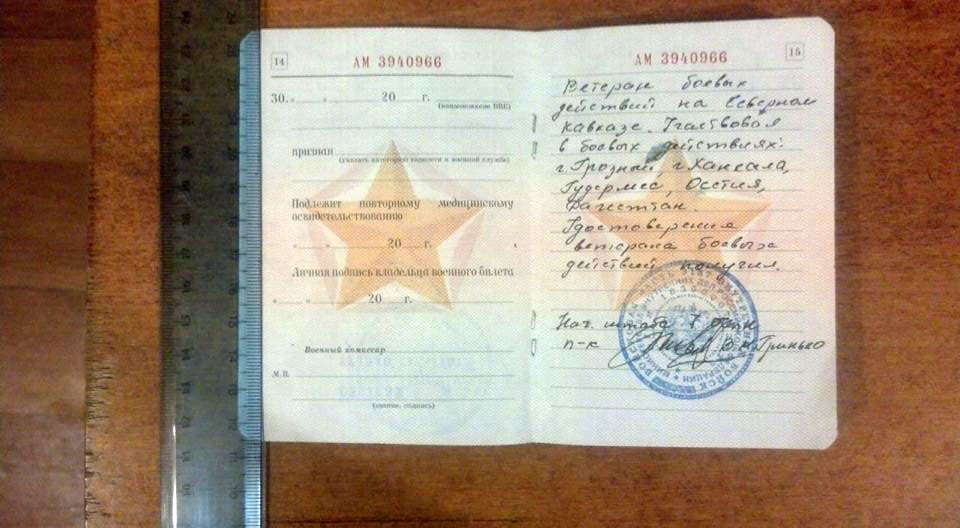 14
АМ 3940966
30. „ „ 20 г.
(наименование ВВК)
признан
(указать категорию годности к военной службе)
Подлежит повторному медицинскому
освидетельствованию
„ „ 20 г.
Личная подпись владельца военного билета
„ „ 20 г.
Военный комиссар
М.П.
(звание, подпись)
15
АМ 3940966
Ветеран боевых
действий на Северном
Кавказе. Участвовал
в боевых действиях:
г. Грозный г. Ханкала,
Гудермес, Осетия,
Дагестан.
Удостоверения
ветерана боевых
действий получил.
Нач. штаба 7
п-к Гринько